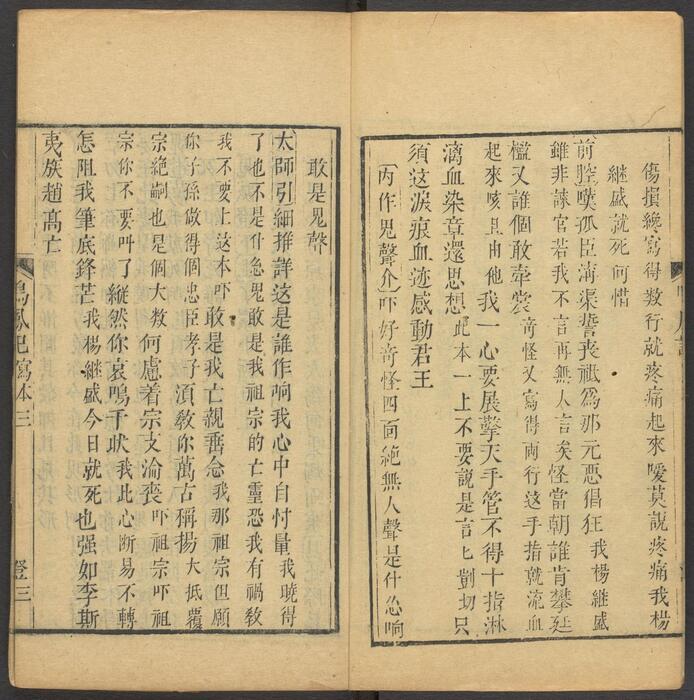 傷損纔寫得数行就疼痛起來噯莫說疼痛我楊
継盛就死何惜
前腔嘆孤臣溝渠誓喪祗為那元惡倡狂我楊継盛
雖非諫官若我不言再無人言矣怪當朝誰肯攀廷
檻又誰個敢牽裳竒怪又寫得兩行这手指就流血
起來咳且由他我一心要展擎天手管不得十指淋
漓血染章還思想此本一上不要說是言匕剴切只
須这淚痕血迹感動君王
丙作鬼聲介吓好竒怪四面絶無人聲是什庅响
敢是鬼聲
太師引細推詳這是誰作响我心中自忖量我曉得
了也不是什庅鬼敢是我祖宗的亡靈恐我有禍教
我不要上这本吓敢是我亡親垂念我那祖宗但願
你子孫做得個忠臣孝子須敎你萬古稱揚大抵覆
宗絶嗣也是個大数何慮着宗支淪喪吓祖宗吓祖
宗你不要叫了縱然你哀鳴千狀我此心断易不轉
怎阻我筆底鋒芒我楊継盛今日就死也强如李斯
夷族趙高亡
鳴鳳記寫本三
三